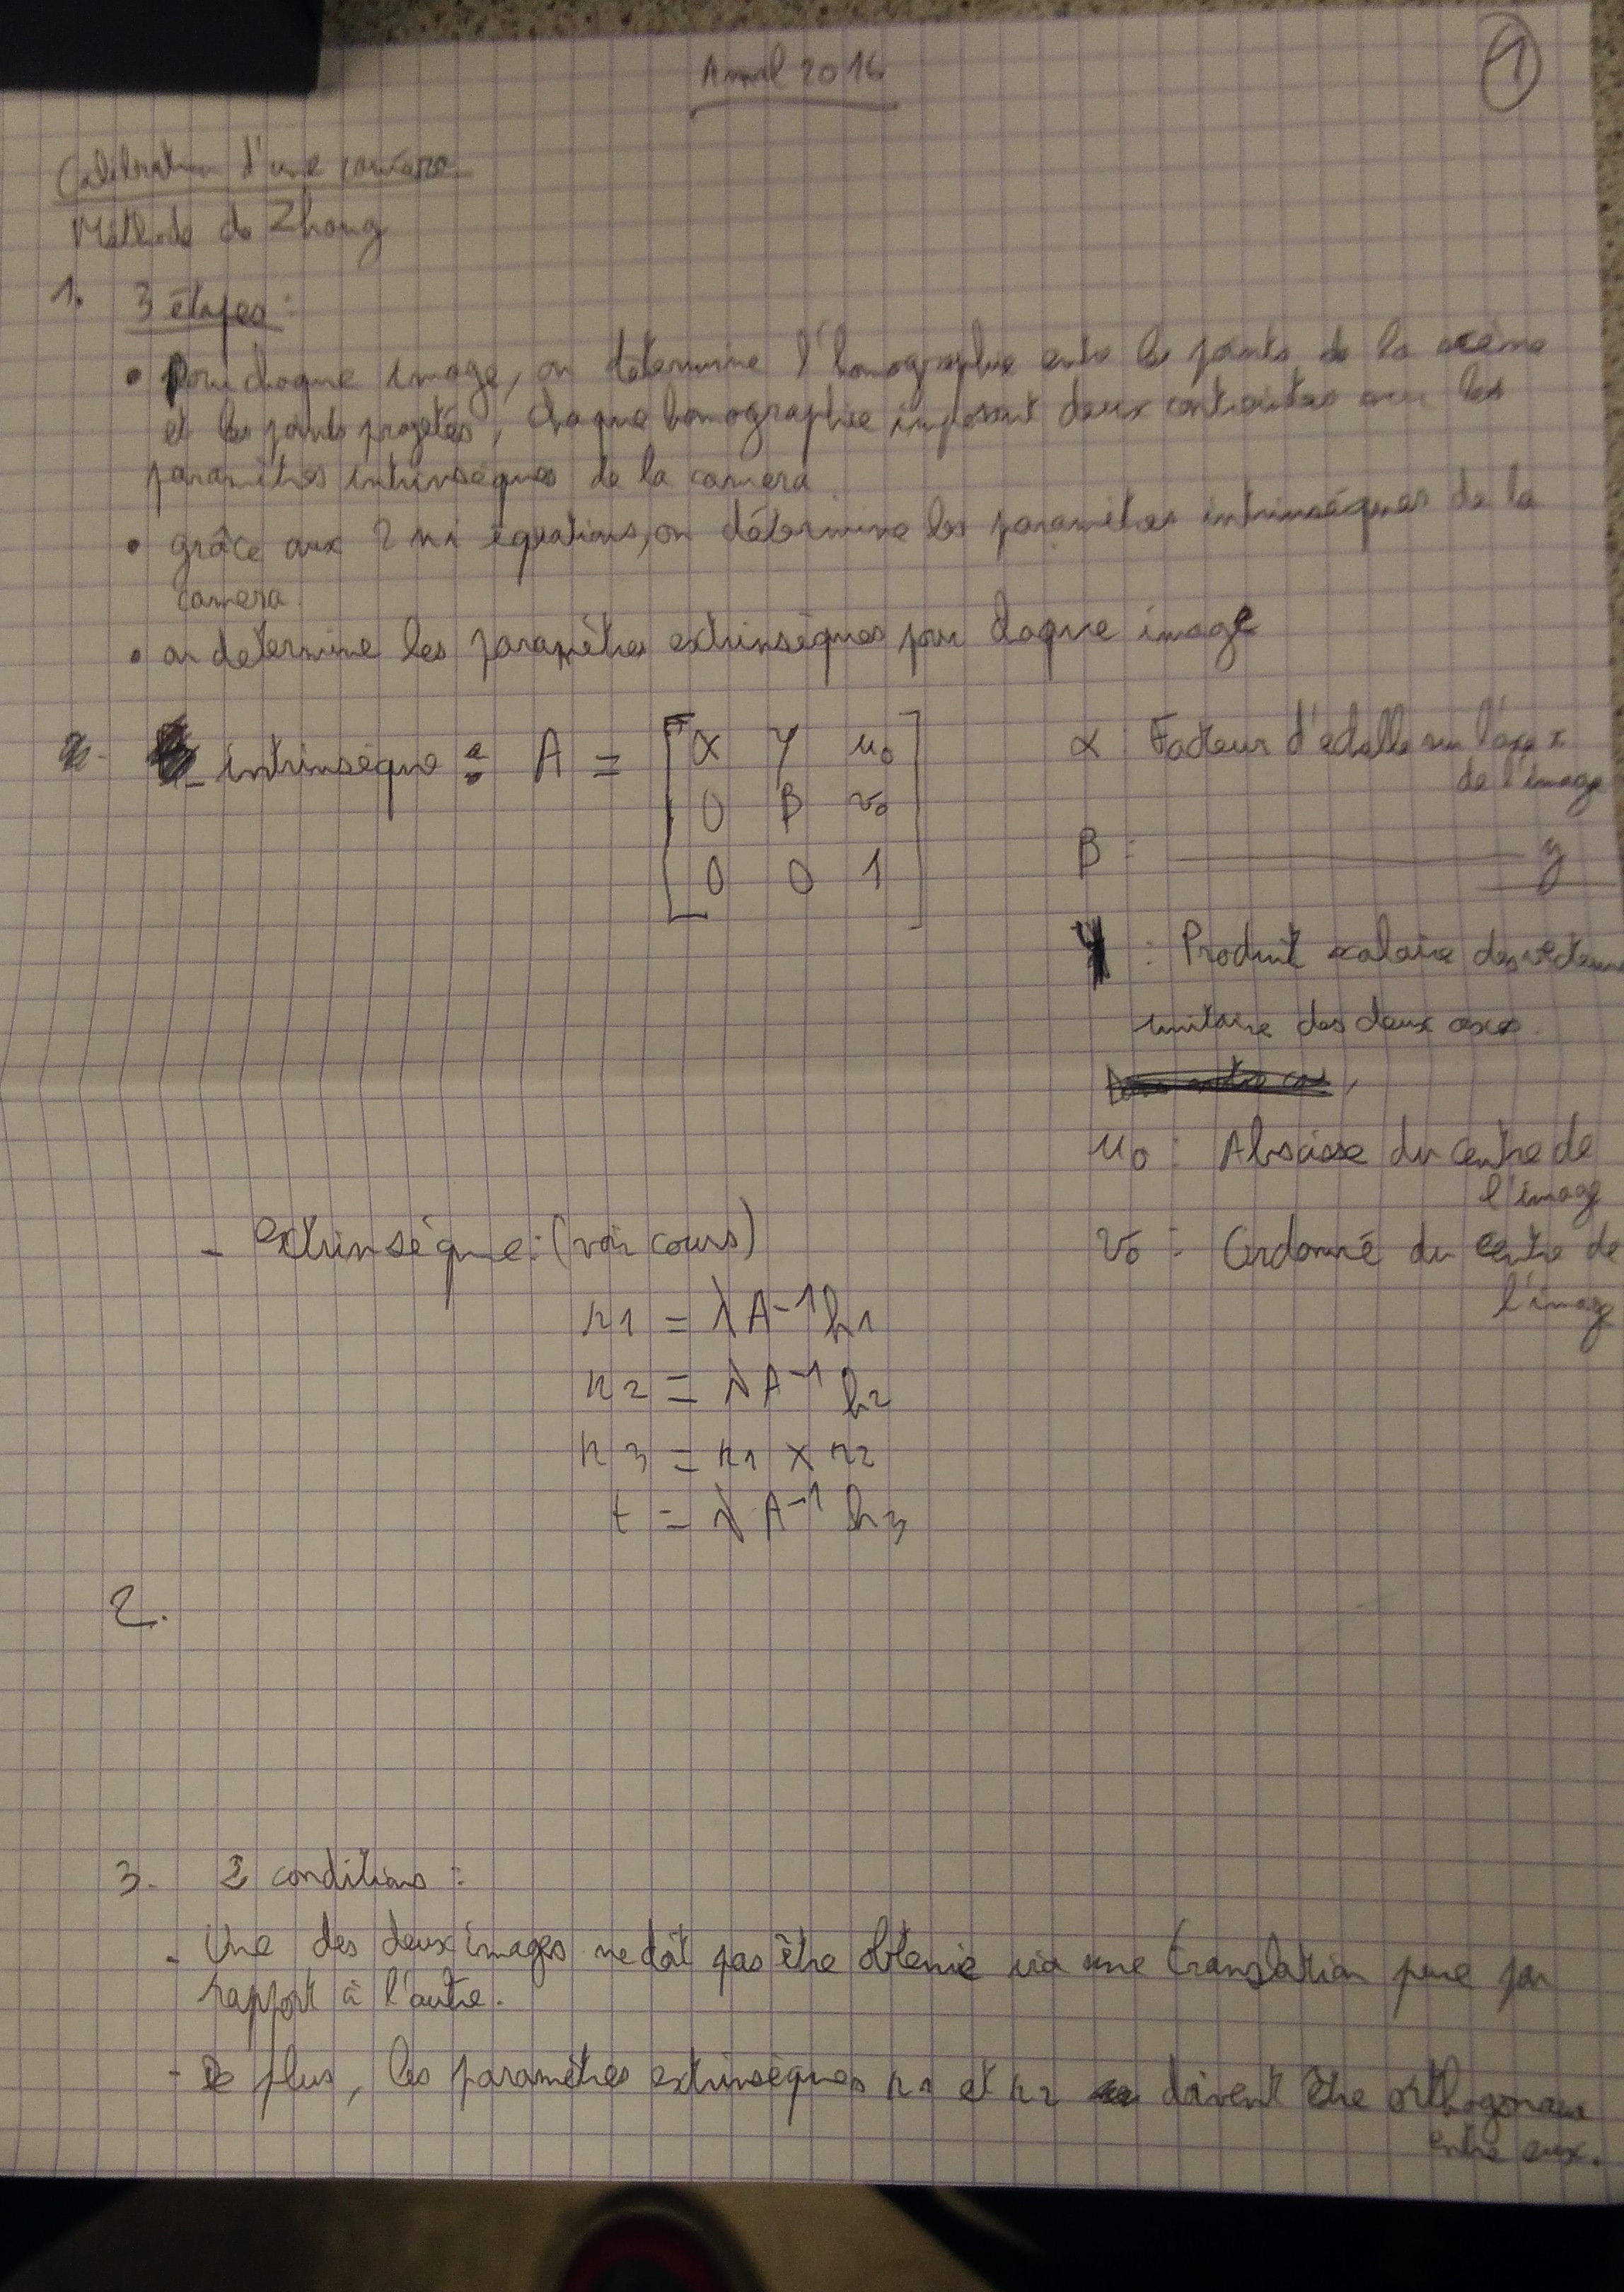 Annal 2016
1
Calibration d'une caméra
Méthode de Zhang
1. 3 étapes :
• Pour chaque image, on détermine l'homographie entre les points de la scène
et les points projetés, chaque homographie imposant deux contraintes sur les
paramètres intrinsèques de la camera.
• grâce aux 2 ni équations, on détermine les paramètres intrinsèques de la
camera.
• on determine les paramètres extrinsèques pour chaque image
- intrinsèque : A = [ α γ u0
0 β v0
0 0 1 ]
α : Facteur d'échelle sur l'axe x
de l'image
β : ——— y
γ : Produit scalaire des vecteurs
unitaire des deux axes.
u0 : Abscisse du centre de
l'image
v0 : Ordonné du centre de
l'image
- extrinsèque : (voir cours)
r1 = λ A^-1 h1
r2 = λ A^-1 h2
r3 = r1 × r2
t = λ A^-1 h3
2.
3. 2 conditions :
- Une des deux images ne doit pas être obtenie via une translation pure par
rapport à l'autre.
- De plus, les paramètres extrinsèques r1 et r2 doivent être orthogonaux
entre eux.